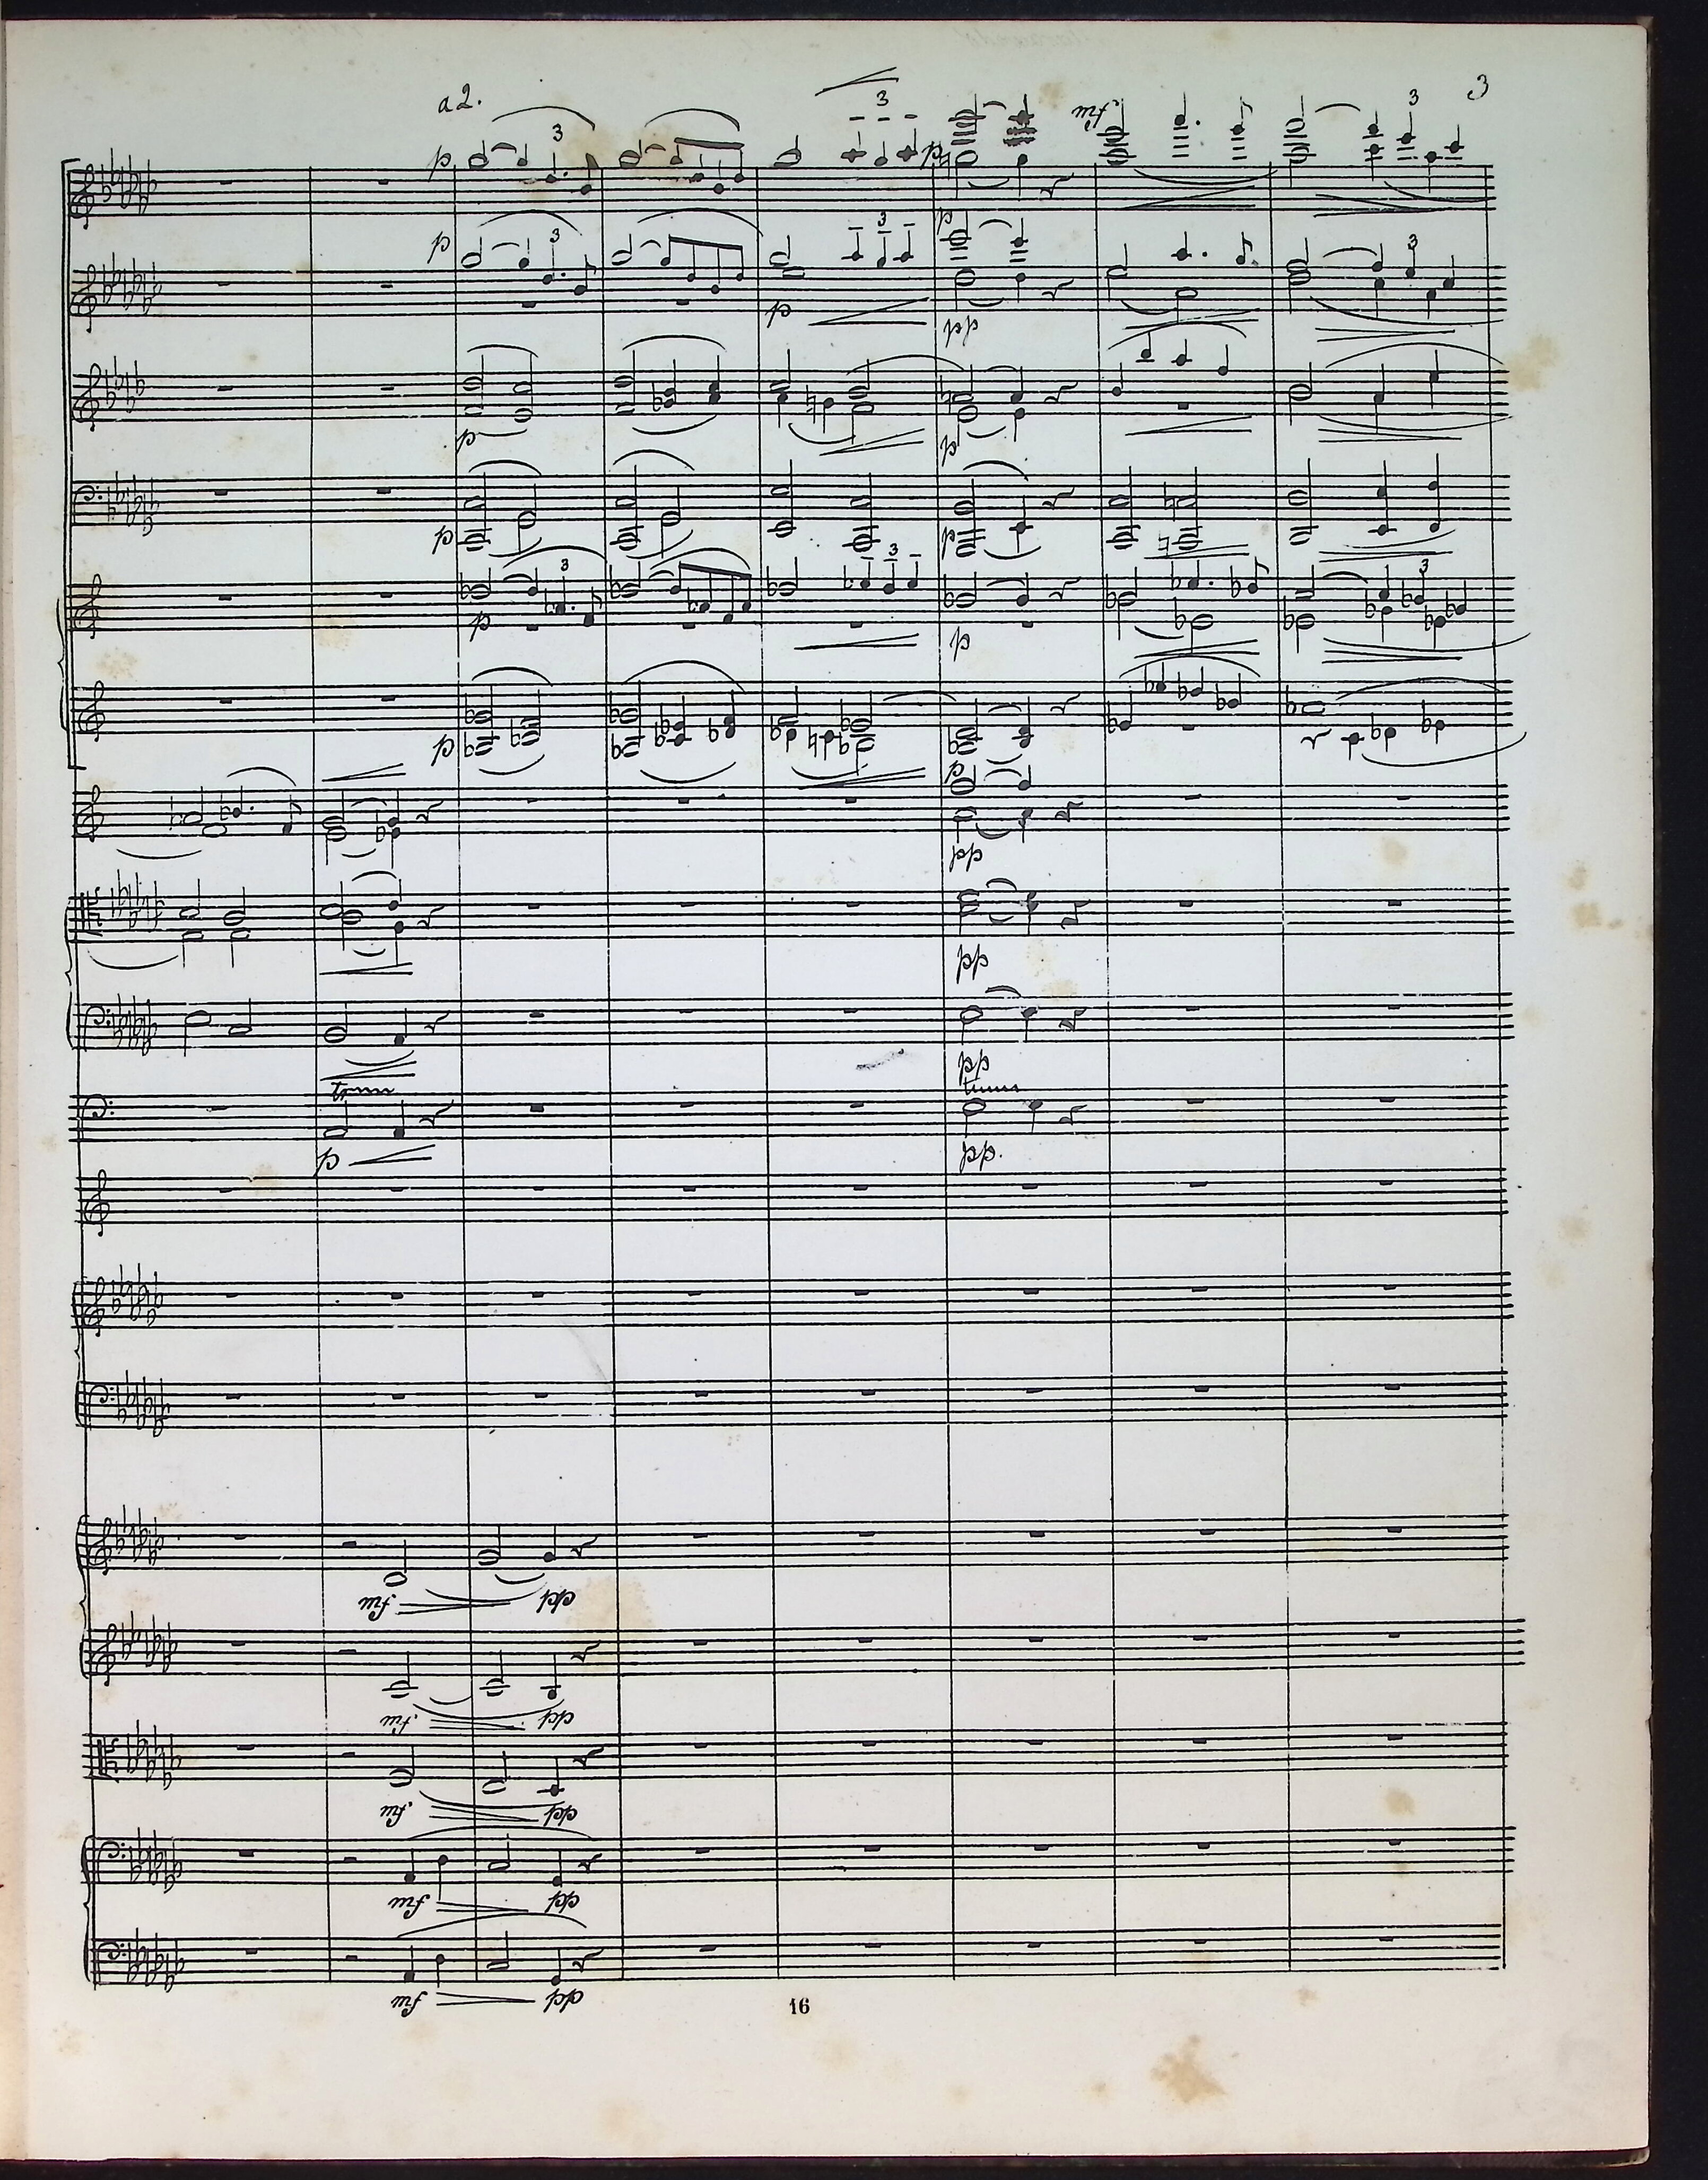 3
a2.
3
p 3 p mf 3
p 3 3 p 3
p pp
p p
p p
3 3 3
p p
p p
pp
pp
pp
trm trm
p pp.
mf pp
mf. pp
mf. pp
mf pp
mf pp
16